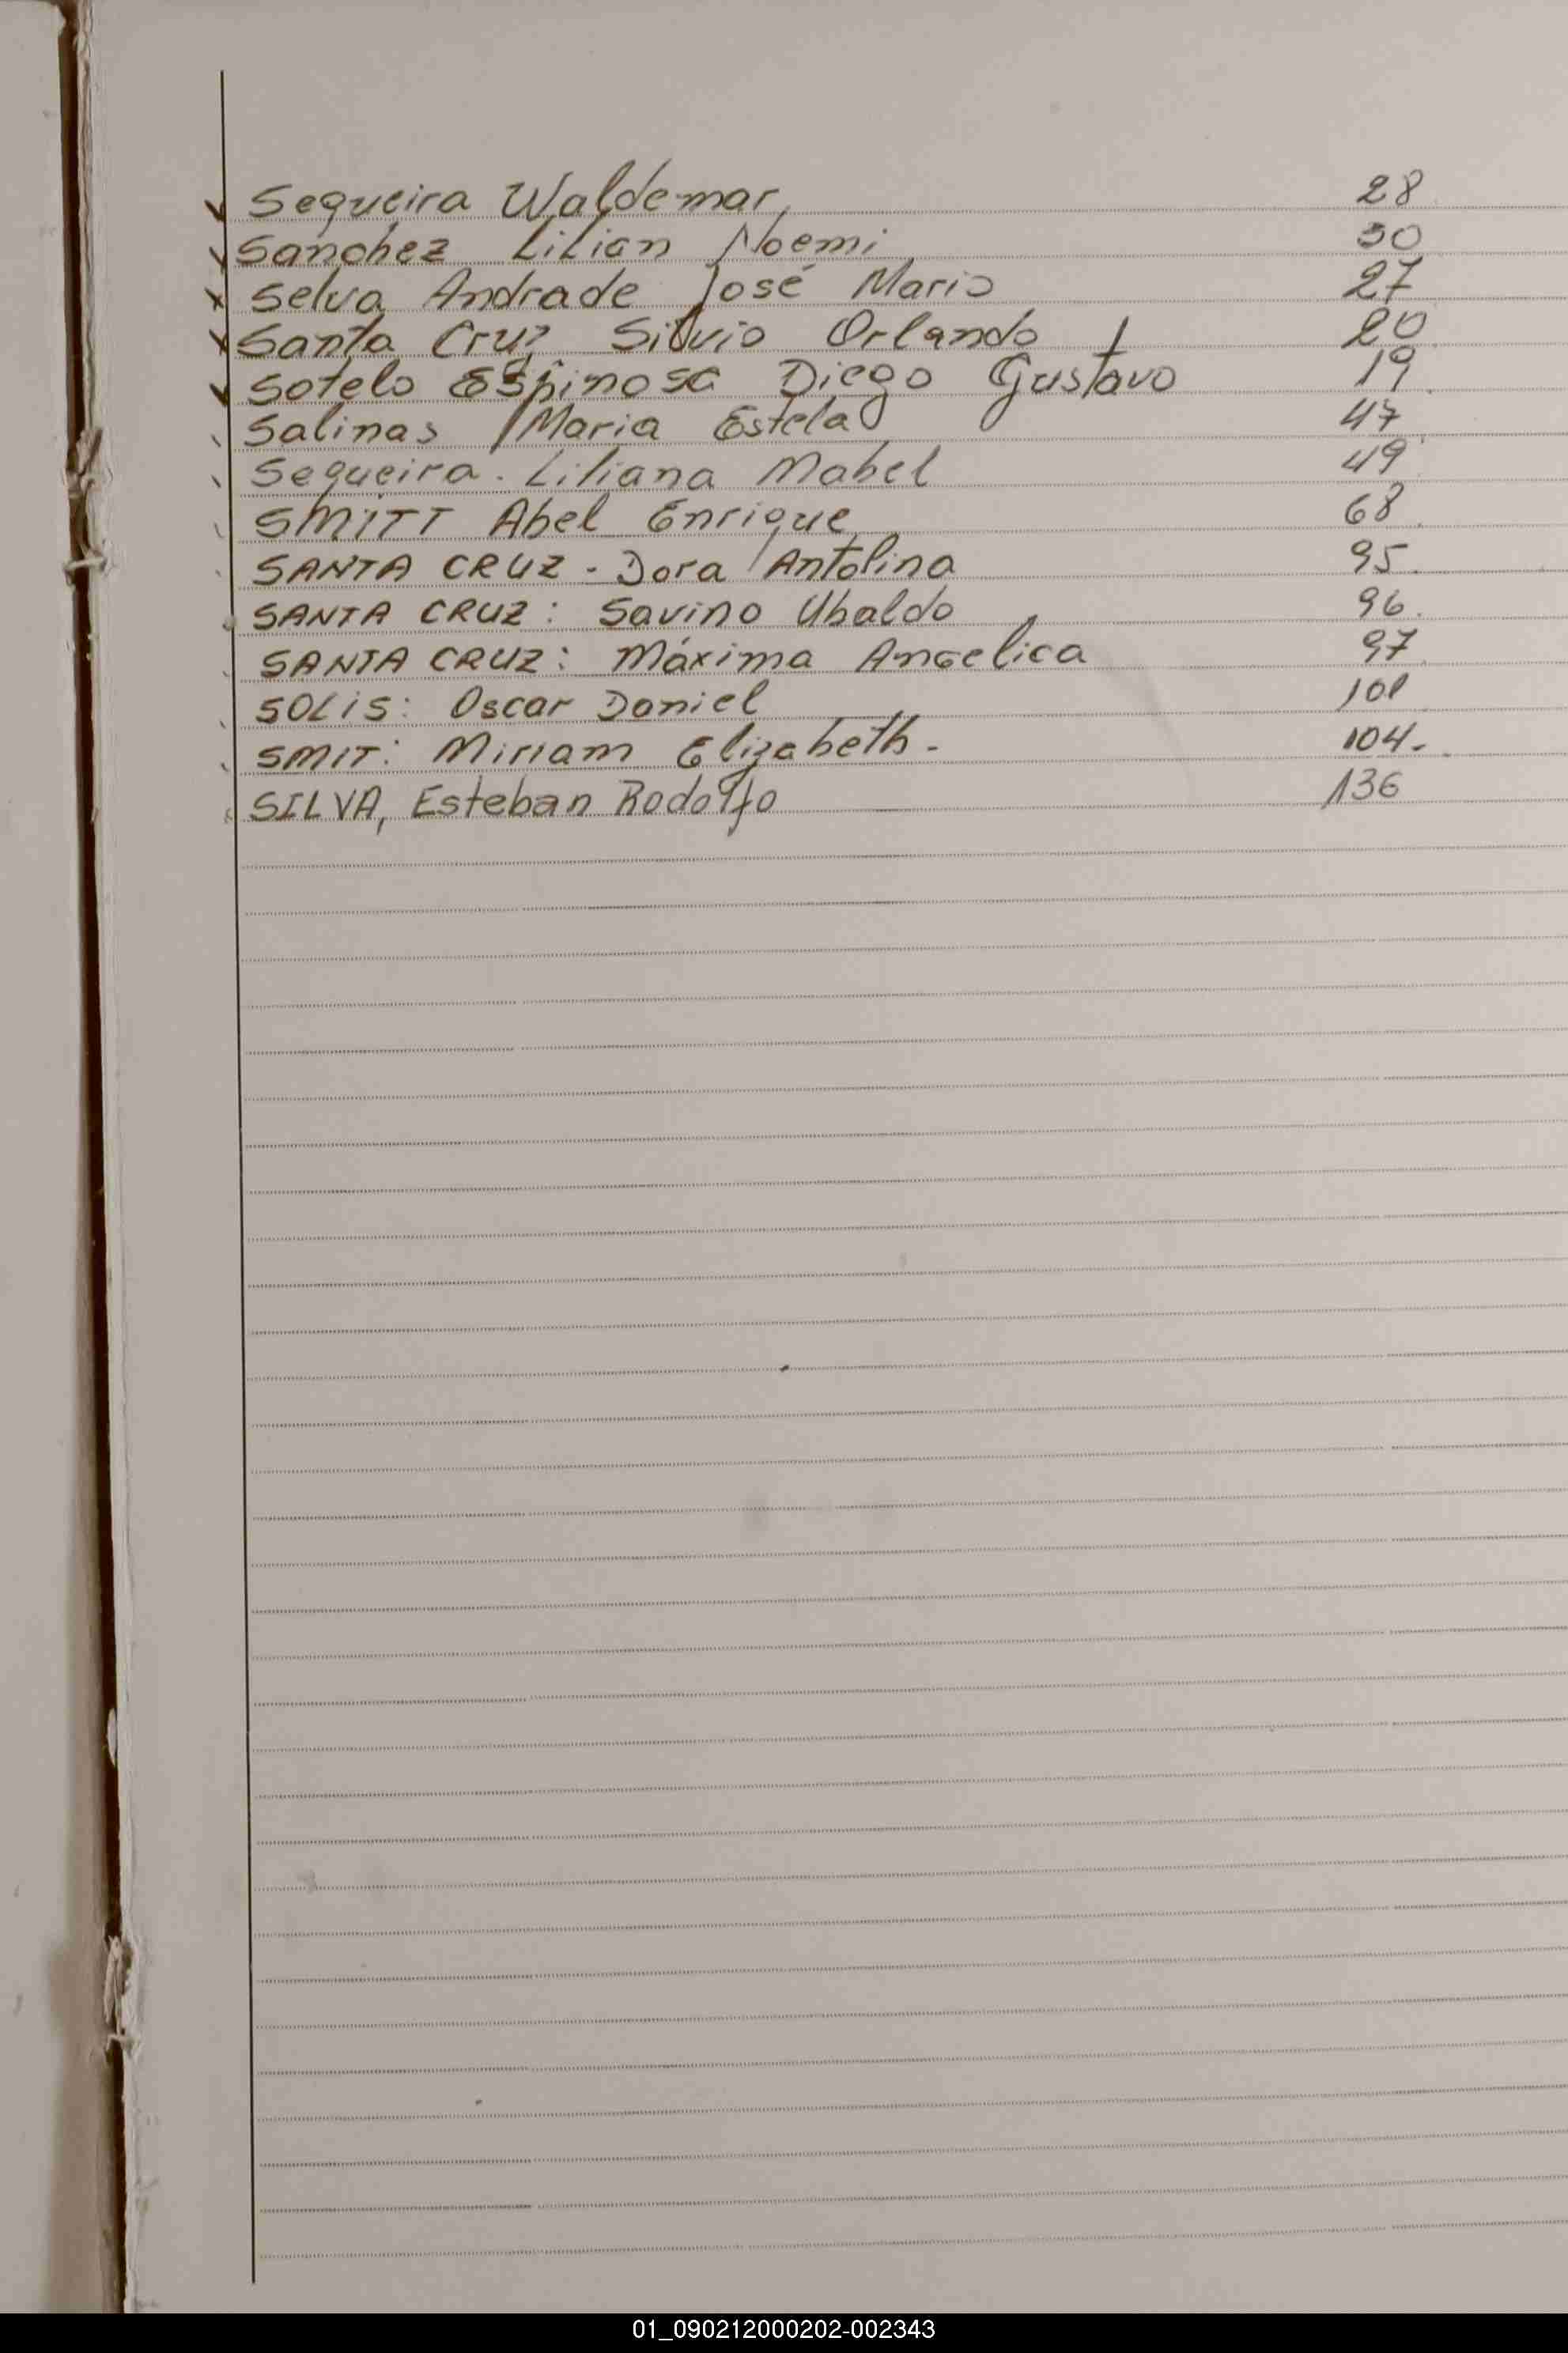 Sequeira Waldemar 28
Sanchez Lilian Noemi 30
Selva Andrade José Mario 27
Santa Cruz Silvio Orlando 20
Sotelo Espinosa Diego Gustavo 19
Salinas Maria Estela 47
Sequeira. Liliana Mabel 49
SMITT Abel Enrique 68
SANTA CRUZ - Dora Antolina 95.
SANTA CRUZ: Savino Ubaldo 96.
SANTA CRUZ: Máxima Angelica 97
SOLIS: Oscar Daniel 101
SMIT: Miriam Elizabeth - 104-
SILVA, Esteban Rodolfo 136
01_090212000202-002343